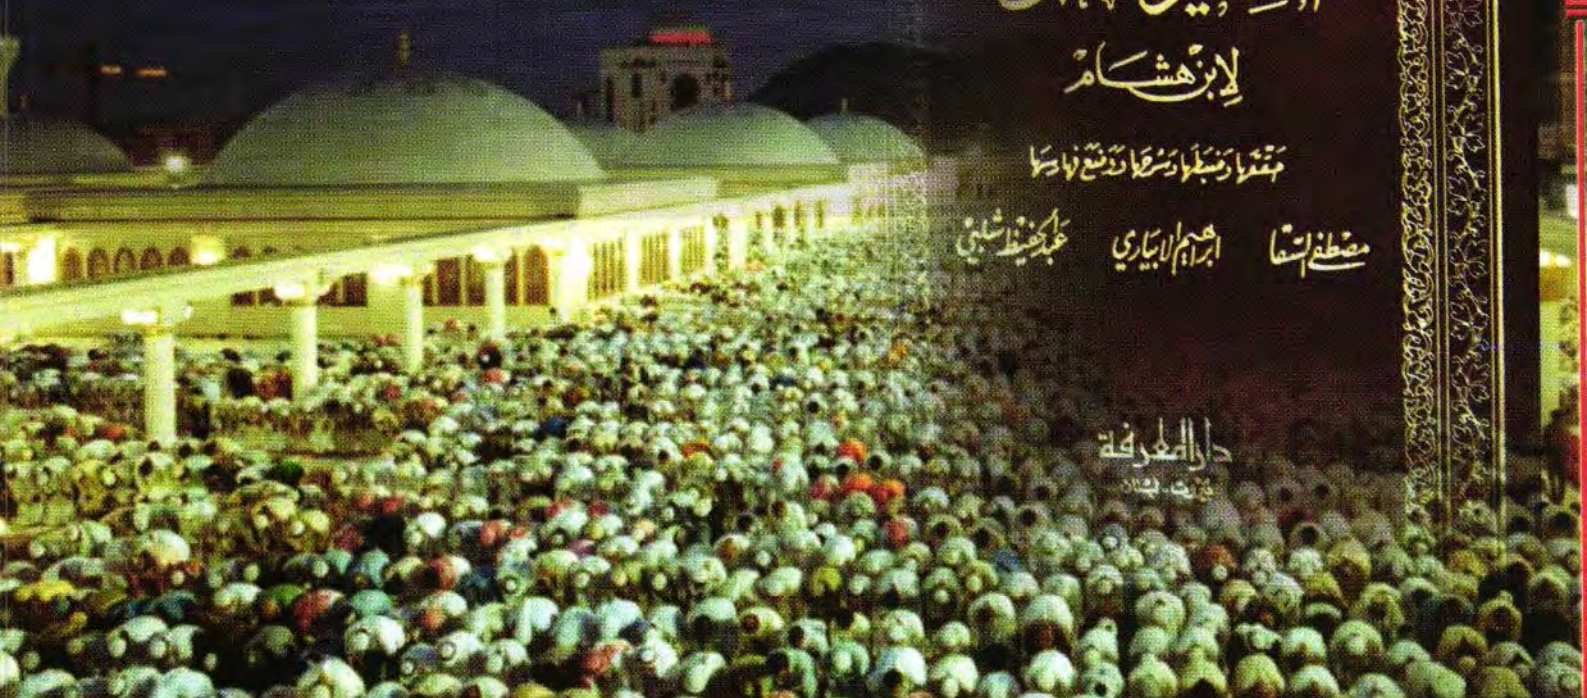 لِابْن هِشَامْ
حَقَّقَهَا وَضَبَطَهَا وَشَرَحَهَا وَوَضَعَ فَهَارِسَهَا
مصطفى السقا ابراهيم الابياري عبد الحفيظ شلبي
دار المعرفة
بيروت - لبنان